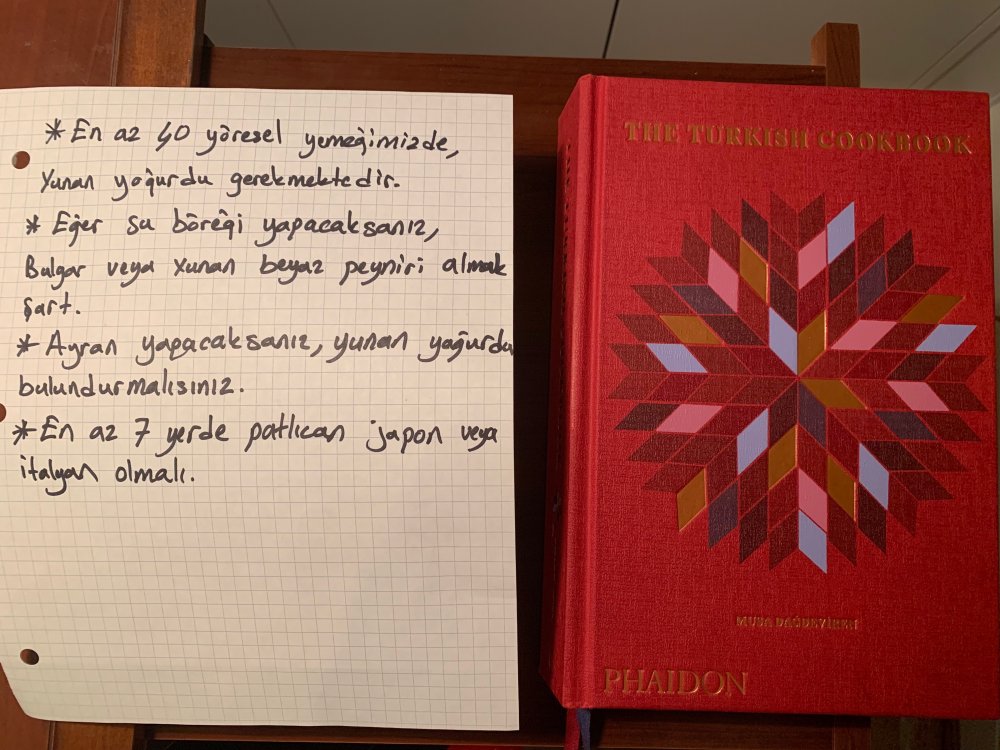 * En az 40 yöresel yemeğimizde,
Yunan yoğurdu gerekmektedir.
* Eğer su böreği yapacaksanız,
Bulgar veya Yunan beyaz peyniri almak
şart.
* Ayran yapacaksanız, yunan yoğurdu
bulundurmalısınız.
* En az 7 yerde patlıcan japon veya
italyan olmalı.
THE TURKISH COOKBOOK
MUSA DAĞDEVİREN
PHAIDON